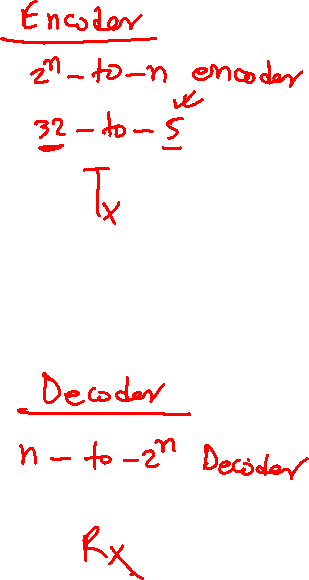 Encoder
2ⁿ-to-n encoder
32-to-5
Tx
Decoder
n-to-2ⁿ Decoder
Rx